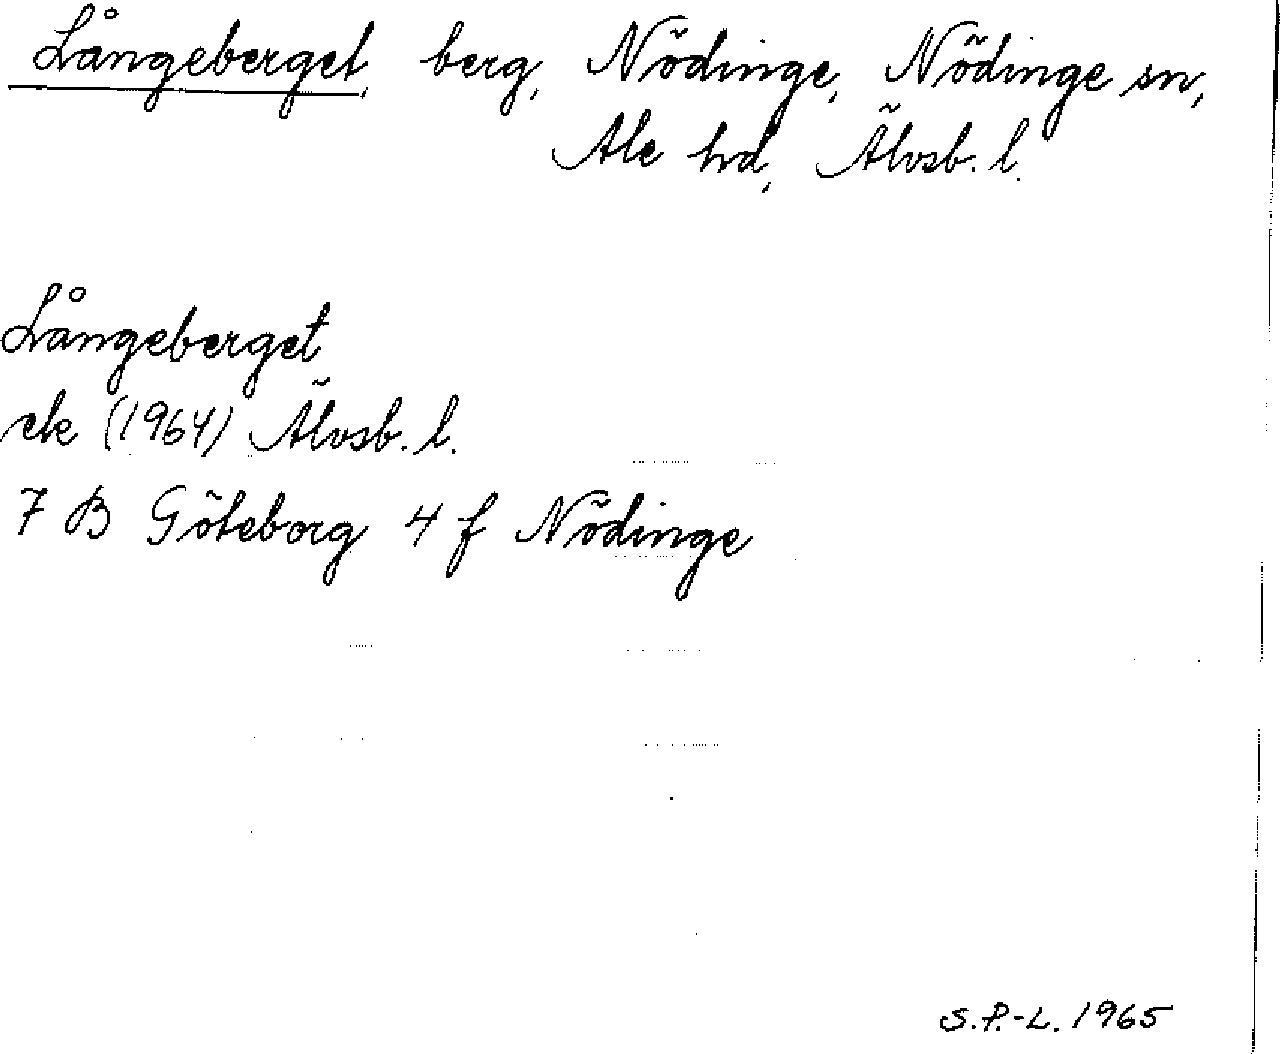 Långeberget, berg, Nödinge, Nödinge sn,
Ale hd, Älvsb. l.
Långeberget
ek (1964) Älvsb. l.
7 B Göteborg 4 f Nödinge
S.P.-L. 1965